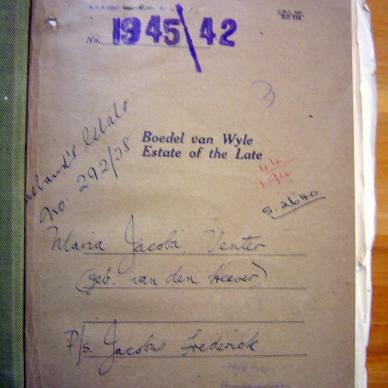 No. 1945/42
3
Boedel van Wyle
Estate of the Late
Husband's Estate
No 292/08
44
194
S. 2640
Maria Jacoba Venter
(geb. van den Heever)
P/s. Jacobus Frederick